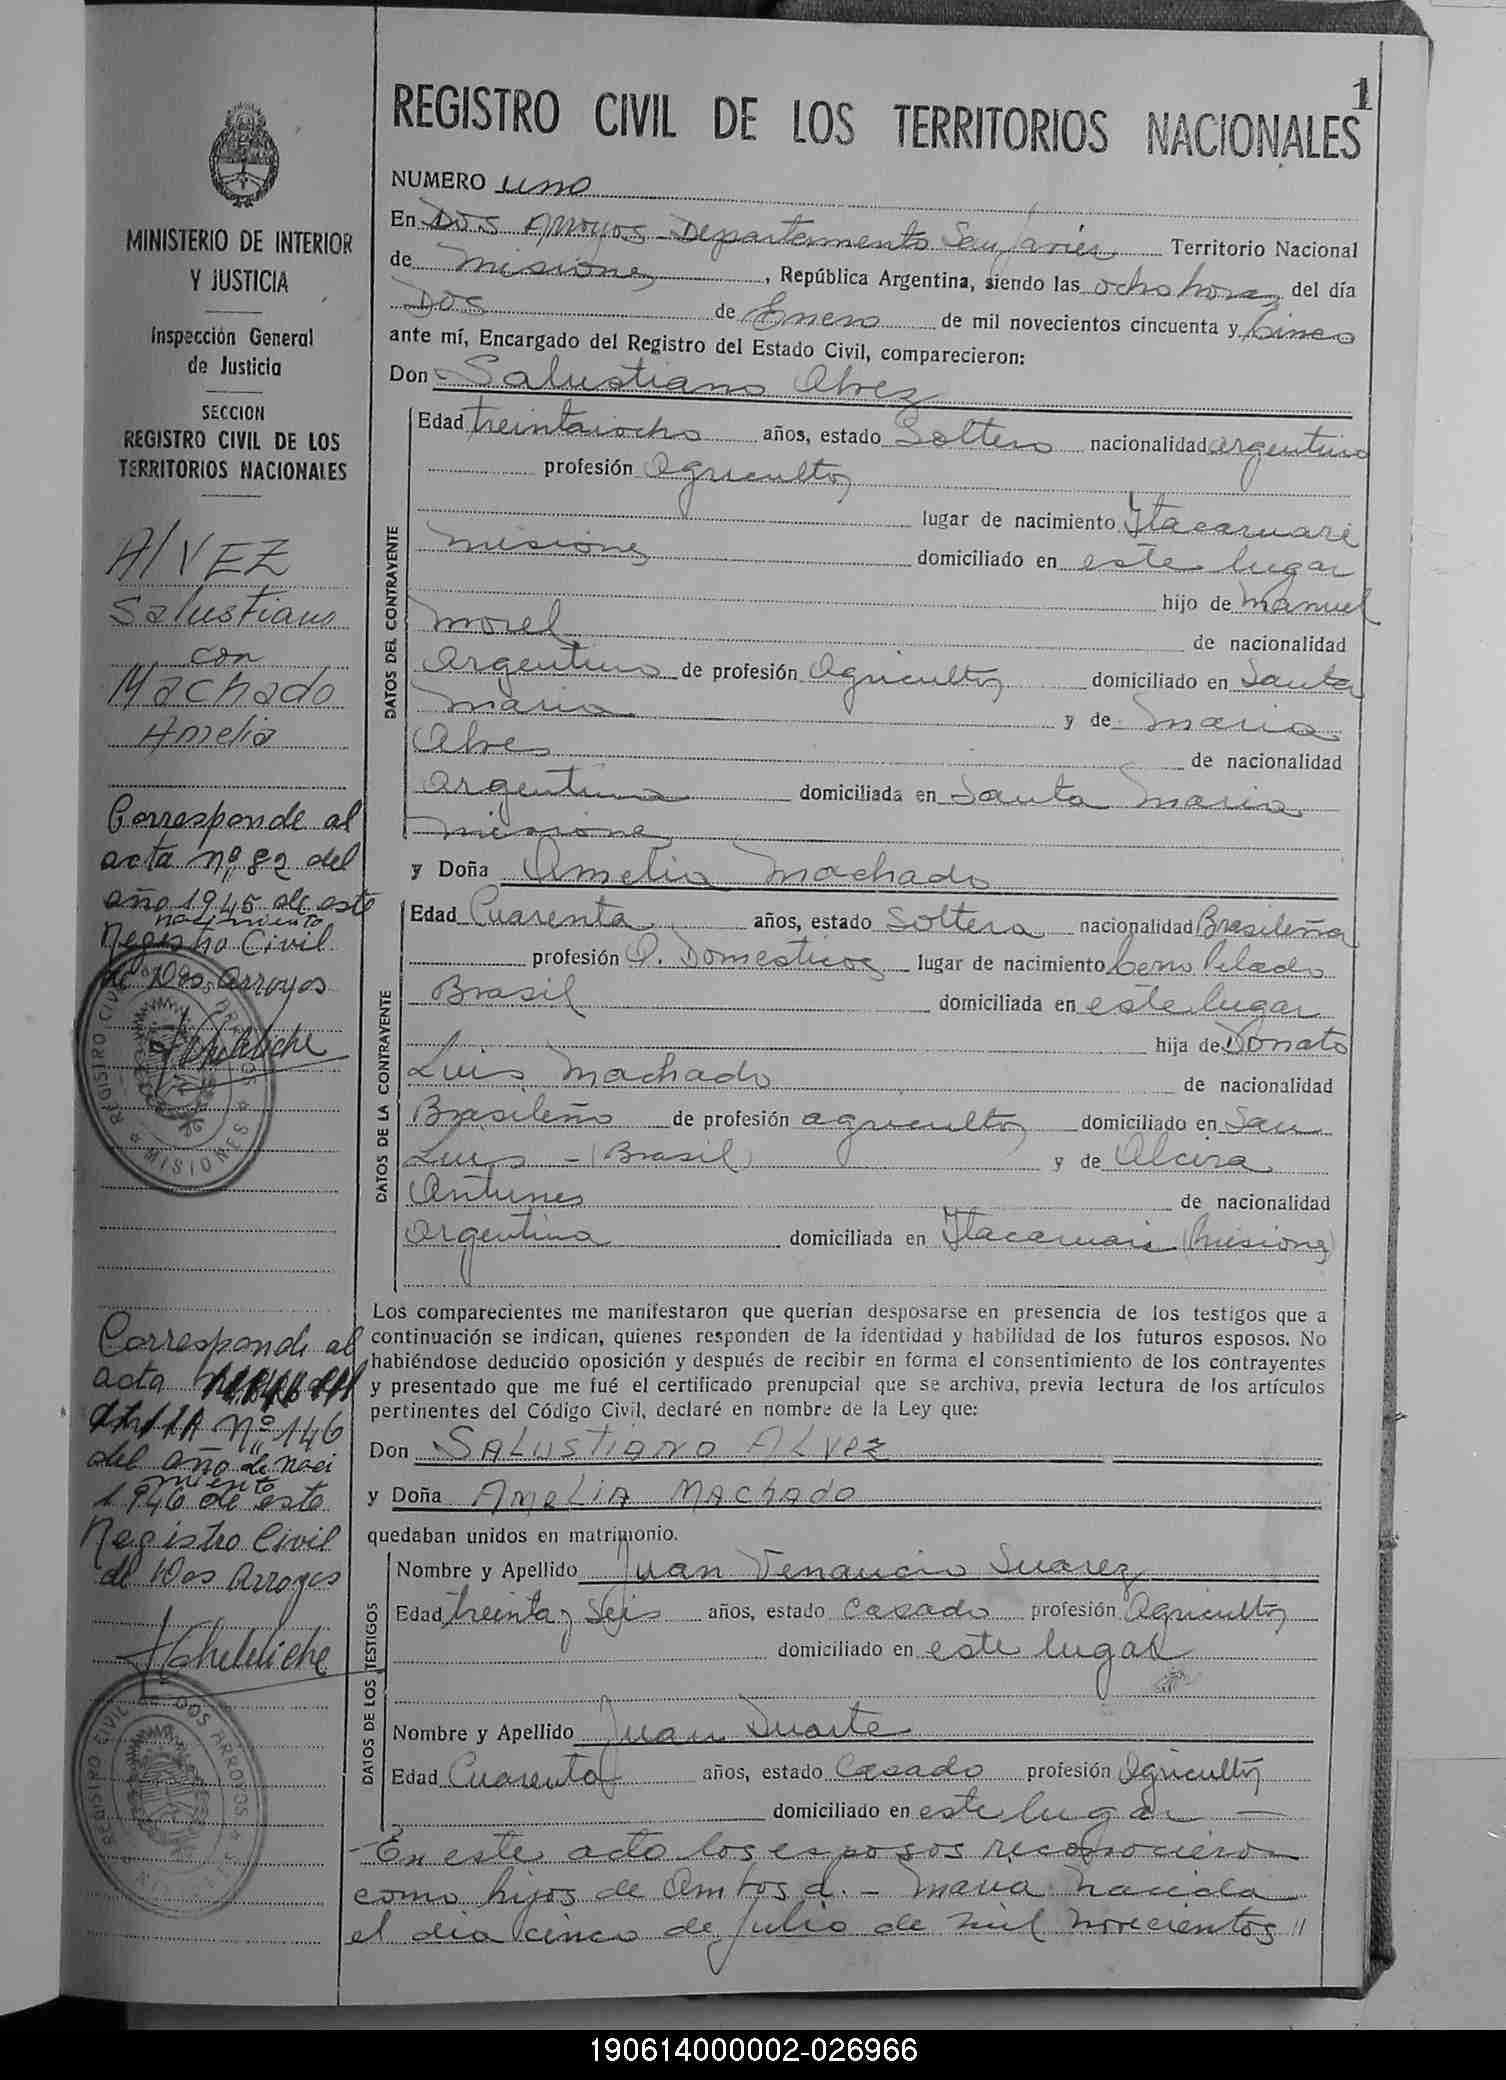 1
REGISTRO CIVIL DE LOS TERRITORIOS NACIONALES
MINISTERIO DE INTERIOR
Y JUSTICIA
Inspección General
de Justicia
SECCION
REGISTRO CIVIL DE LOS
TERRITORIOS NACIONALES
AlVEZ
Salustiano
con
Machado
Amelia
Corresponde al
acta nº 82 del
año 1945 de este
nacimiento
Registro Civil
de Dos Arroyos
REGISTRO CIVIL DOS ARROYOS
MISIONES
Corresponde al
acta
Nº 146
del año de naci
miento
1946 de este
Registro Civil
de Dos Arroyos
REGISTRO CIVIL DOS ARROYOS
NUMERO uno
En Dos Arroyos Departamento San Javier Territorio Nacional
de Misiones, República Argentina, siendo las ocho horas del día
Dos de Enero de mil novecientos cincuenta y Cinco
ante mí, Encargado del Registro del Estado Civil, comparecieron:
Don Salustiano Alvez
DATOS DEL CONTRAYENTE
Edad treintaiocho años, estado Soltero nacionalidad argentino
profesión Agricultor
lugar de nacimiento Itacaruaré
Misiones domiciliado en este lugar
hijo de Manuel
Morel de nacionalidad
Argentino de profesión Agricultor domiciliado en Santa
Maria y de Maria
Alves de nacionalidad
argentina domiciliada en Santa Maria
Misiones
y Doña Amelia Machado
DATOS DE LA CONTRAYENTE
Edad Cuarenta años, estado Soltera nacionalidad Brasileña
profesión Q. Domesticos lugar de nacimiento Cerro Pelado
Brasil domiciliada en este lugar
hija de Donato
Luis Machado de nacionalidad
Brasileño de profesión agricultor domiciliado en San
Luis - (Brasil) y de Alcira
Antunes de nacionalidad
argentina domiciliada en Itacaruaré (Misiones)
Los comparecientes me manifestaron que querían desposarse en presencia de los testigos que a
continuación se indican, quienes responden de la identidad y habilidad de los futuros esposos. No
habiéndose deducido oposición y después de recibir en forma el consentimiento de los contrayentes
y presentado que me fué el certificado prenupcial que se archiva, previa lectura de los artículos
pertinentes del Código Civil, declaré en nombre de la Ley que:
Don SALUSTIANO ALVEZ
y Doña AMELIA MACHADO
quedaban unidos en matrimonio.
DATOS DE LOS TESTIGOS
Nombre y Apellido Juan Venancio Suarez
Edad treinta y Seis años, estado Casado profesión Agricultor
domiciliado en este lugar
Nombre y Apellido Juan Duarte
Edad Cuarenta años, estado Casado profesión Agricultor
domiciliado en este lugar —
- En este acto los esposos reconocieron
como hijos de ambos a. - Maria nacida
el dia cinco de julio de mil novecientos //
190614000002-026966